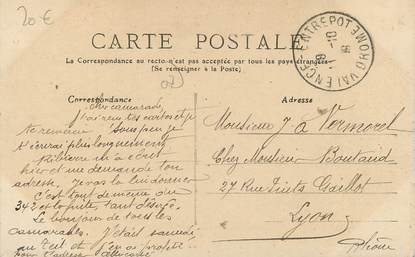 20 €
CARTE POSTALE
La Correspondance au recto n'est pas acceptée par tous les pays étrangers
(Se renseigner à la Poste)
VALENCE-ENTREPOT DROME
Correspondance
Cher camarade,
J'ai reçu tes cartes et je
te remercie Sous peu je
t'écrirai plus longuement
m'a écrit
hier et me demande ton
adresse. Je vais la lui donner
C'est tout de même du
342 et la fuite, tant désirée.
Le bonjour de tous les
camarades. J'étais samedi
au Teil et j'en ai profité
pour
Adresse
Monsieur J. A. Vermorel
Chez Monsieur Boutaud
27 Rue Puits Gaillot
Lyon
Rhône